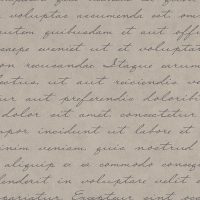 voluptas assumenda est, om
autem quibusdam et aut offi
saepe eveniet ut et voluptat
non recusandae. Itaque earum
delectus, ut aut reiciendis vo
tur aut perferendis doloribu
dolor sit amet, consectetur
mpor incididunt ut labore et
minim veniam, quis nostrud
aliquip ex ea commodo conseq
enderit in voluptate velit
pariatur. Excepteur sint occ